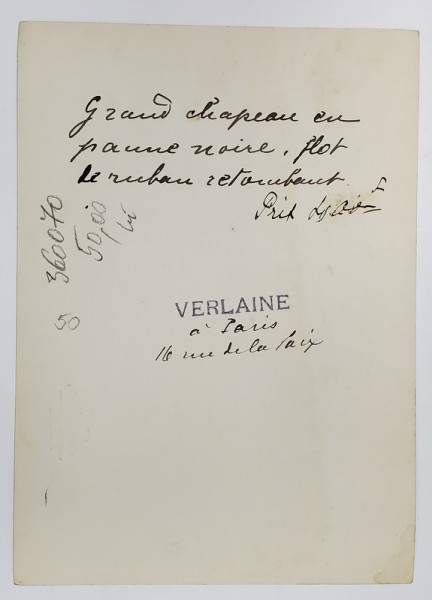 Grand chapeau en
panne noire, flot
de ruban retombant
Prix
VERLAINE
à Paris
16 rue de la Paix
360070
50,00
50